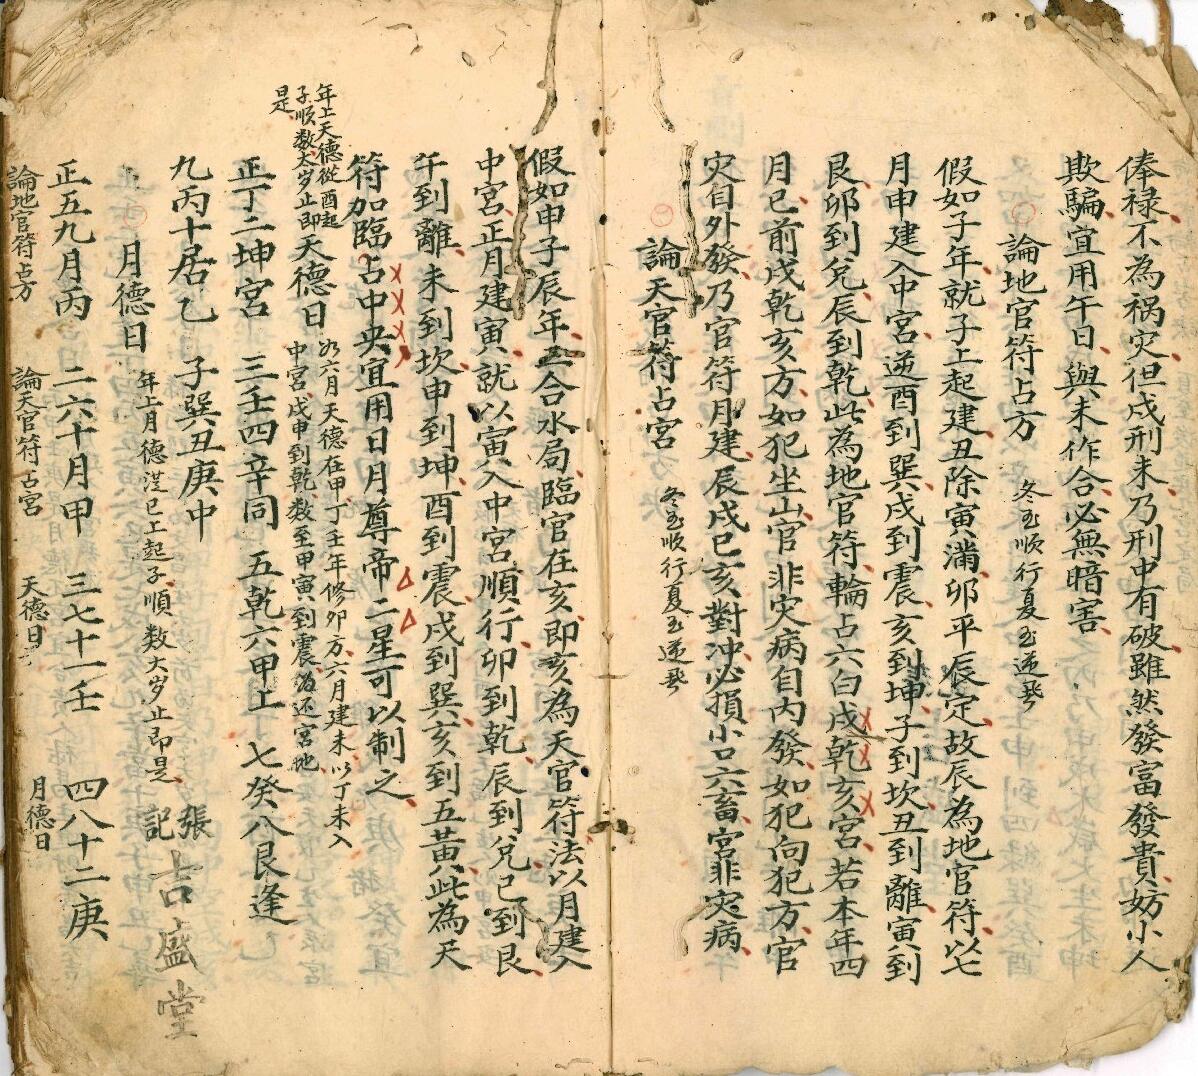 俸禄不為祸灾但戌刑未乃刑中有破雖然發富發貴妨小人
欺騙宜用午日與未作合必無暗害
論地官符占方 冬至順行夏至逆飛
假如子年就子上起建丑除寅滿卯平辰定故辰為地官符以七
月申建入中宮逆酉到巽戌到震亥到坤子到坎丑到離寅到
艮卯到兌辰到乾此為地官符輪占六白戌乾亥宮若本年四
月已前戌乾亥方如犯坐山官非灾病自内發如犯向犯方官
灾自外發乃官符月建辰戌巳亥對冲必損小口六畜官非灾病
論天官符占宮 冬至順行夏至逆飛
假如申子辰年三合水局臨官在亥即亥為天官符法以月建入
中宮正月建寅就以寅入中宮順行卯到乾辰到兌巳到艮
午到離未到坎申到坤酉到震戌到巽亥到五黃此為天
符加臨占中央宜用日月尊帝二星可以制之
年上天德從酉起
子順数太岁止即
是
天德日
如六月天德在甲丁壬年修卯方六月建未以丁未入
中宮戊申到乾数至甲寅到震為还宮地
正丁二坤宮 三壬四辛同 五乾六甲上 七癸八艮逢
九丙十居乙 子巽丑庚中
月德日 年上月德從巳上起子順数太岁止即是
張記吉盛堂
正五九月丙 二六十月甲 三七十一壬 四八十二庚
論地官符占方 論天官符占宮 天德日 月德日